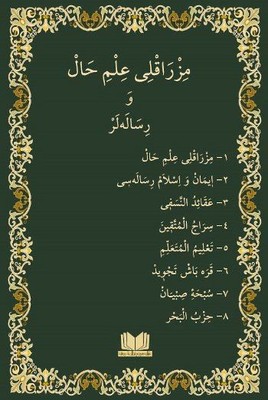 مِزْرَاقْلِى عِلْمِ حَالْ
وَ
رِسَالَه‌لَرْ
١- مِزْرَاقْلِى عِلْمِ حَالْ
٢- اِيمَانْ وَ اِسْلَامْ رِسَالَه‌سِى
٣- عَقَائِدُ النَّسَفِى
٤- سِرَاجُ الْمُتَّقِينَ
٥- تَعْلِيمُ الْمُتَعَلِّمِ
٦- قَرَه بَاشْ تَجْوِيدْ
٧- سُبْحَۀِ صِبْيَانْ
٨- حِزْبُ الْبَحْرِ